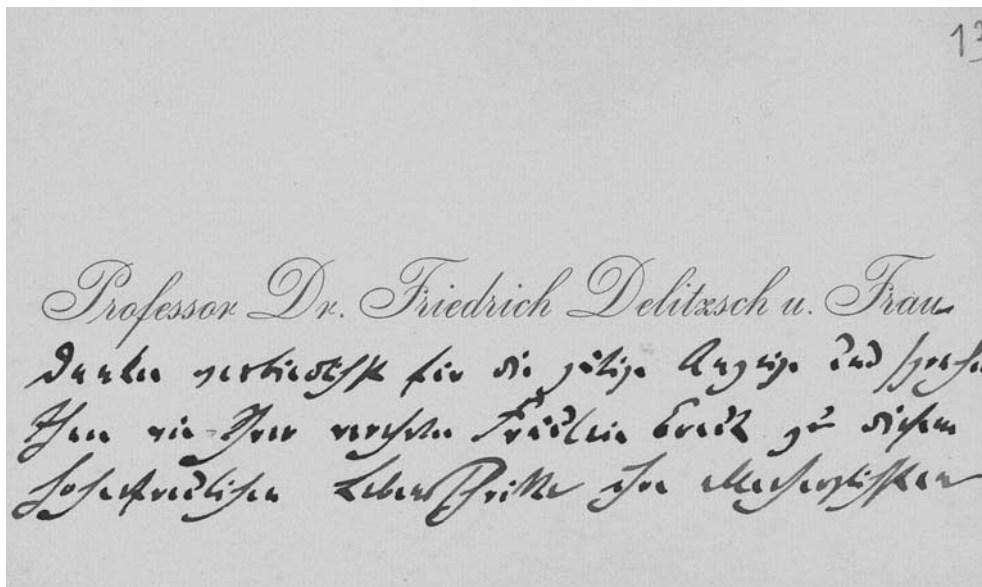 13
Professor Dr. Friedrich Delitzsch u. Frau
danken verbindlichst für die gütige Anzeige und sprechen
Ihnen wie Ihrer verehrten Fräulein Braut zu diesem
hocherfreulichen Lebensschritte ihre allerherzlichsten